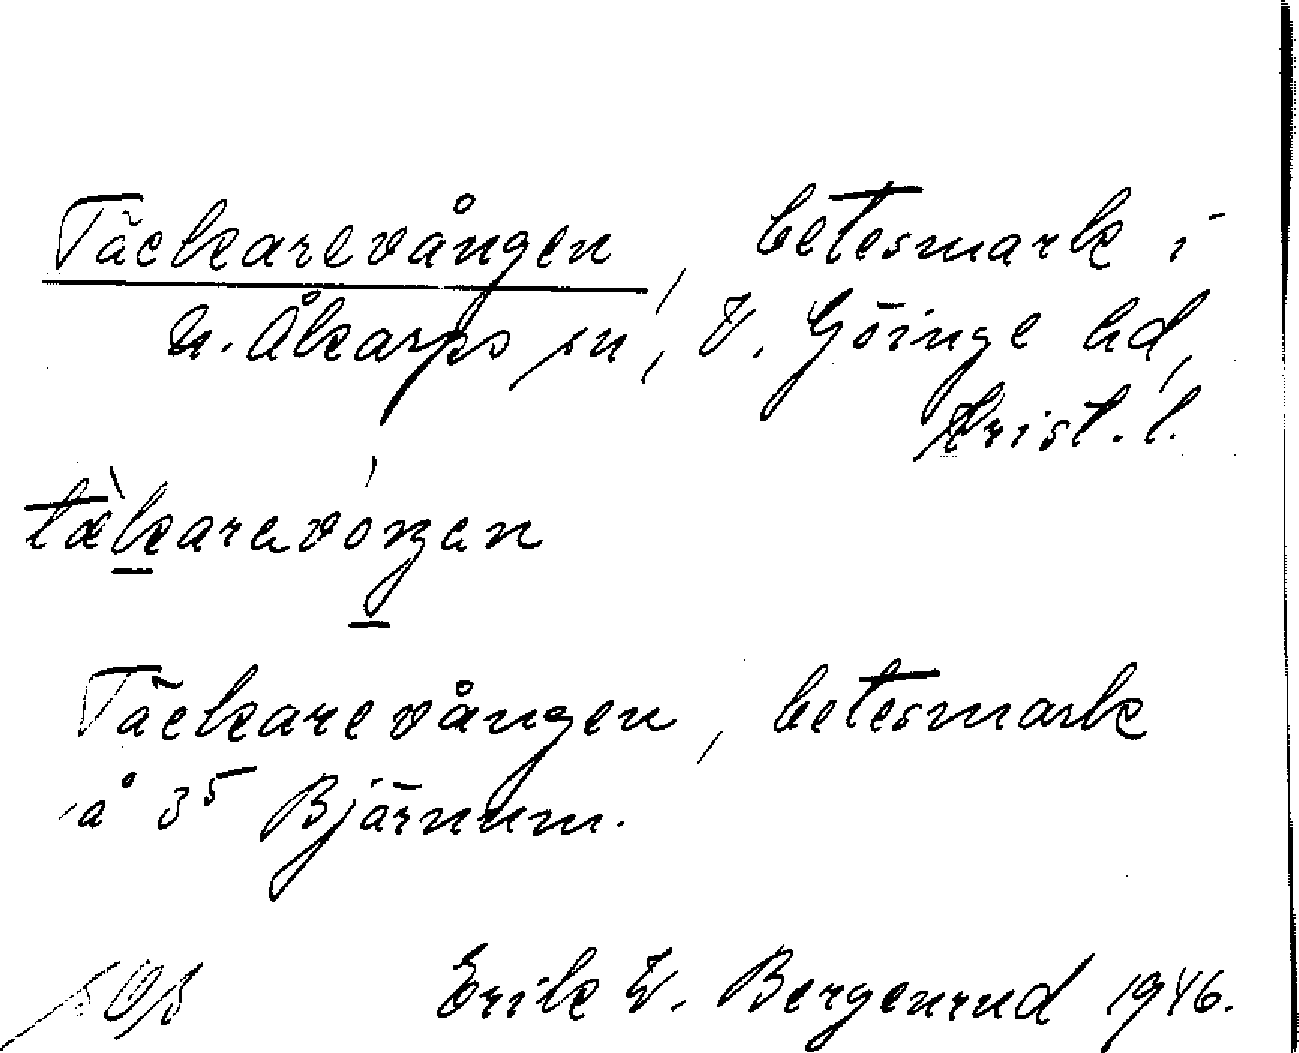 Täckarevången, betesmark i
N. Åkarps sn, V. Göinge hd,
Krist. l.
tækarevóngen
Täckarevången, betesmark
å 3⁵ Bjärnum.
Erik W. Bergenrud 1946.